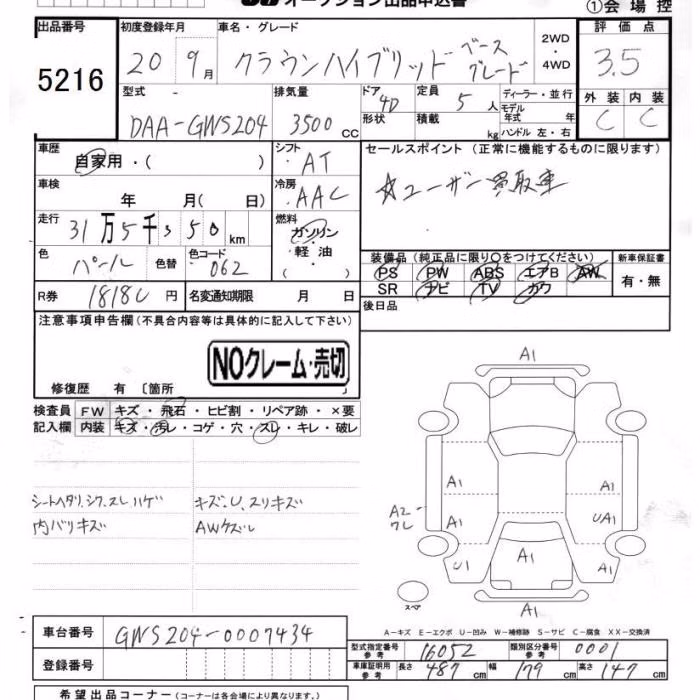 オークション出品申込書
①会場控
出品番号 5216
初度登録年月 20 9月
車名・グレード クラウンハイブリッド ベースグレード
2WD・4WD
評価点 3.5
型式 DAA-GWS204
排気量 3500 cc
ドア 4D 形状
定員 5人 積載 kg
ディーラー・並行
モデル年式 年
ハンドル 左・右
外装 C 内装 C
車歴 自家用・( )
シフト AT
セールスポイント (正常に機能するものに限ります)
☆ユーザー買取車
車検 年 月( 日)
冷房 AAC
走行 31万5千350 km
燃料 ガソリン・軽油・( )
色 パール 色替
色コード 062
装備品 (純正品に限り○をつけてください) 新車保証書
PS PW ABS エアB AW 有・無
SR ナビ TV カワ
R券 18180円 名変通知期限 月 日
後日品
注意事項申告欄 (不具合内容等は具体的に記入して下さい)
NOクレーム・売切
修復歴 有〔箇所 〕
検査員 FW キズ・飛石・ヒビ割・リペア跡・×要
記入欄 内装 キズ・汚レ・コゲ・穴・スレ・キレ・破レ
シートヘタリ.シワ.スレ ハゲ キズ.U.スリキズ
内バリキズ AWケズレ
A1
A1 A1
A2 ワレ A1 UA1
U1 A1 A1
A1
スペア
A-キズ E-エクボ U-凹み W-補修跡 S-サビ C-腐食 XX-交換済
車台番号 GWS204-0007434
型式指定番号 参考 16052 類別区分番号 参考 0001
登録番号
車庫証明用 参考 長さ 487cm 幅 179cm 高さ 147cm
希望出品コーナー (コーナーは各会場により異なります。)